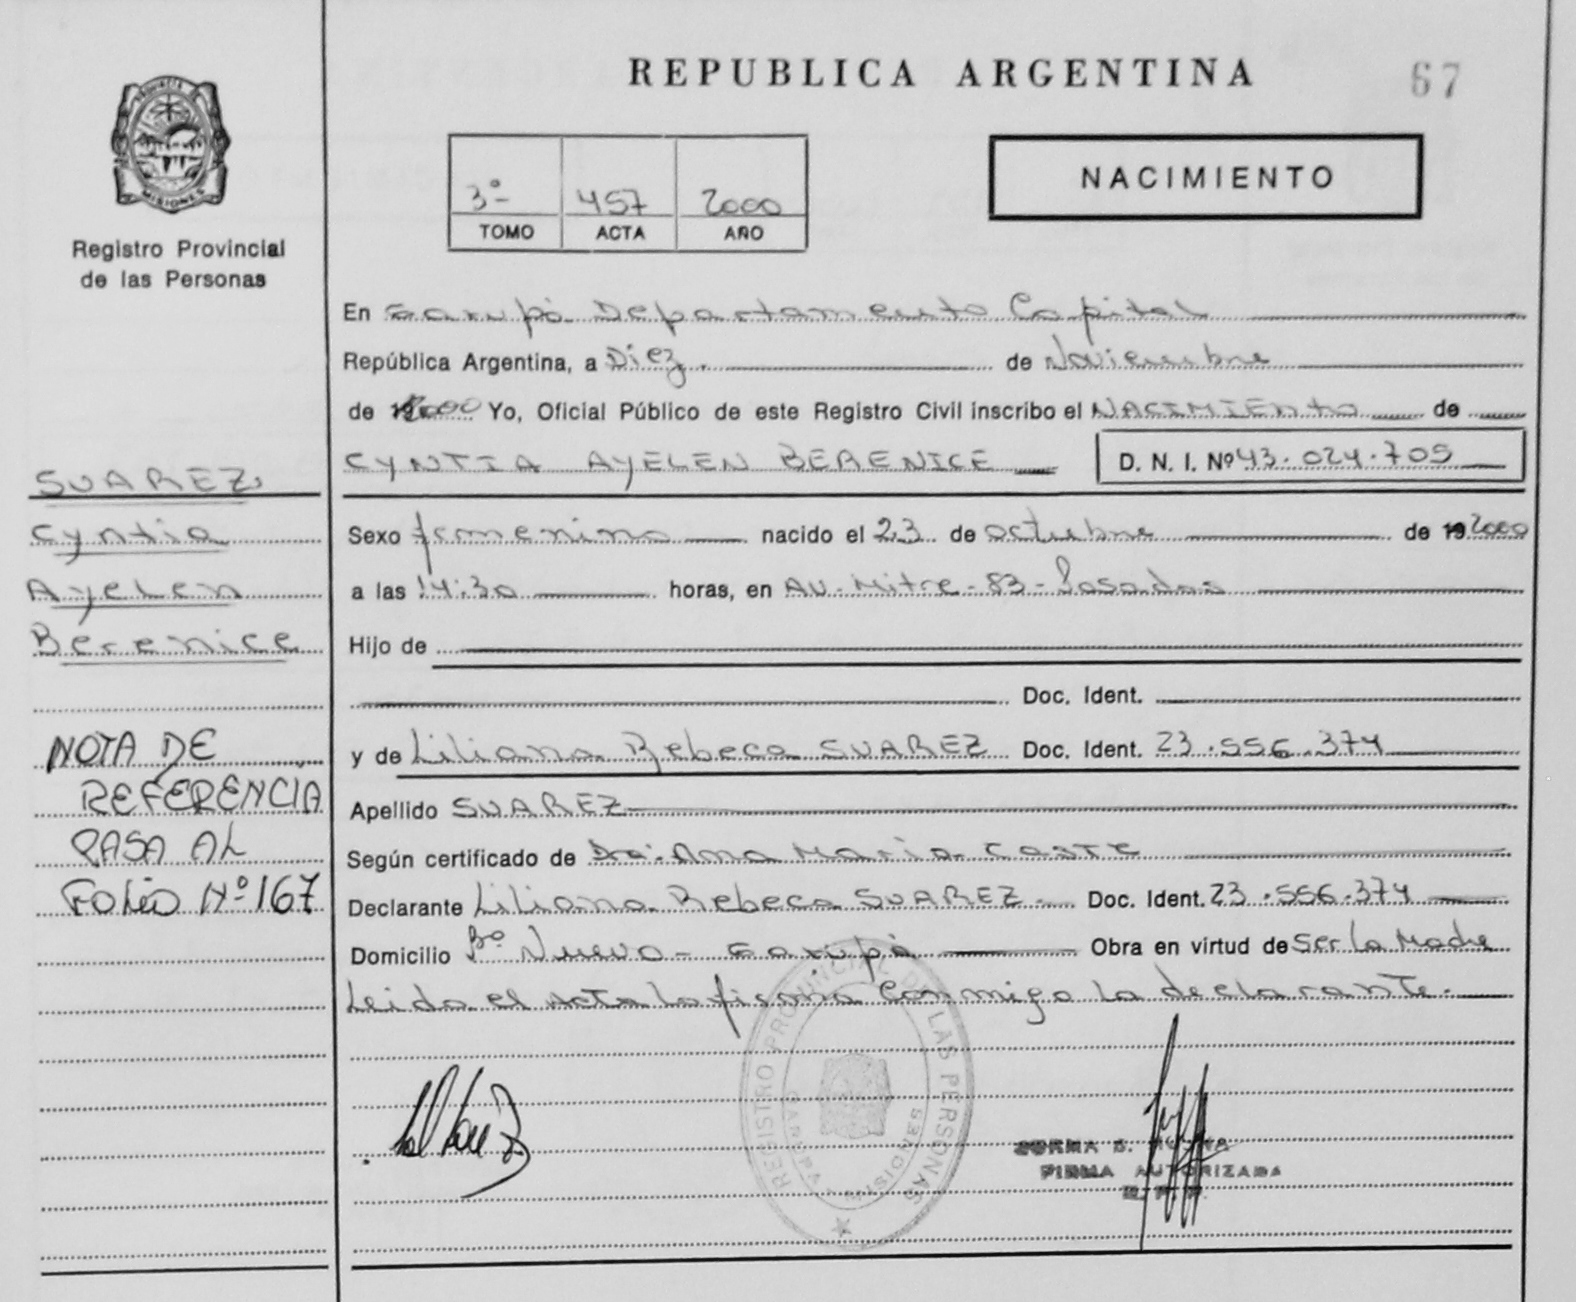 REPUBLICA ARGENTINA
67
MISIONES
Registro Provincial
de las Personas
3º 457 2000
TOMO ACTA AÑO
NACIMIENTO
En Garupá Departamento Capital
República Argentina, a Diez de Noviembre
de 2000 Yo, Oficial Público de este Registro Civil inscribo el NACIMIENTO de
CYNTIA AYELEN BERENICE D. N. I. Nº 43.024.705
SUAREZ
Cyntia
Ayelen
Berenice
NOTA DE
REFERENCIA
PASA AL
FOLIO Nº 167
Sexo femenino nacido el 23 de octubre de 192000
a las 14:30 horas, en AV. Mitre - 83 - Posadas
Hijo de
Doc. Ident.
y de Liliana Rebeca SUAREZ Doc. Ident. 23.556.374
Apellido SUAREZ
Según certificado de Dra. Ana Maria Coste
Declarante Liliana Rebeca SUAREZ Doc. Ident. 23.556.374
Domicilio Bº Nuevo - Garupá Obra en virtud de Ser la Madre
Leida el Acta la firma conmigo la declarante.
REGISTRO PROVINCIAL DE LAS PERSONAS
MISIONES
FIRMA AUTORIZADA